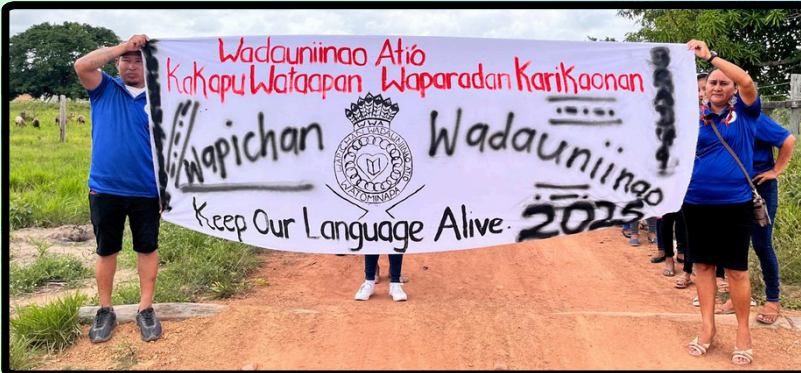 Wadauniinao Atió
KaKapu Wataapan Waparadan KariKaonan
Wapichan
Wadauniinao
WATOMINAPA
Keep Our Language Alive.
2025